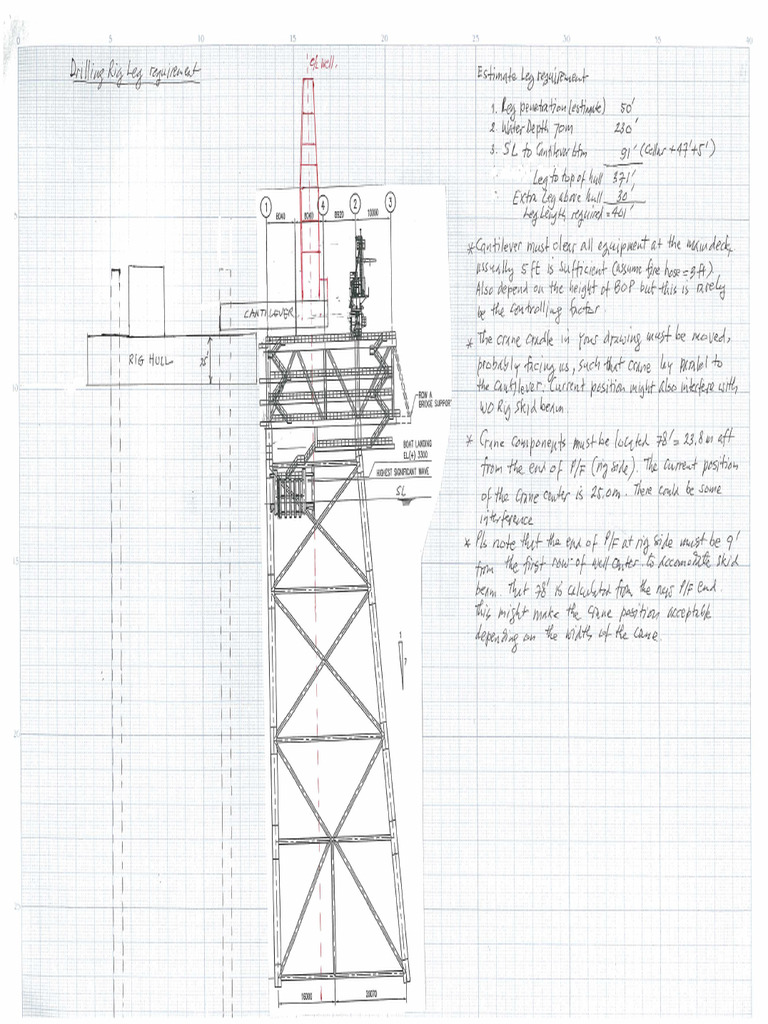 0 5 10 15 20 25 30 35 40
Drilling Rig Leg requirement
℄ well.
Estimate Leg requirement
1. Leg penetration (estimate) 50'
2. Water Depth 70m 230'
3. SL to Cantilever btm 91' (Cellar +47'+5')
Leg to top of hull 371'
Extra Leg above hull 30'
Leg Length required = 401'
* Cantilever must clear all equipment at the main deck,
usually 5 ft is sufficient (assume fire hose = 3 ft).
Also depend on the height of BOP but this is rarely
be the controlling factor.
* The crane cradle in your drawing must be moved,
probably facing us, such that crane lay parallel to
the cantilever. Current position might also interfere with
WO Rig skid beam
* Crane components must be located 78' = 23.8 m aft
from the end of P/F (rig side). The current position
of the crane center is 25.0m. There could be some
interference
* Pls note that the end of P/F at rig side must be 9'
from the first row of well center to accomodate skid
beam. That 78' is calculated from the new P/F end.
This might make the crane position acceptable
depending on the width of the crane.
1 4 2 3
8040 8920 10000
CANTILEVER
RIG HULL
25'
ROW A
BRIDGE SUPPORT
BOAT LANDING
EL(+) 3300
HIGHEST SIGNIFICANT WAVE
SL
1
7
16000 20070
5
10
15
20
25